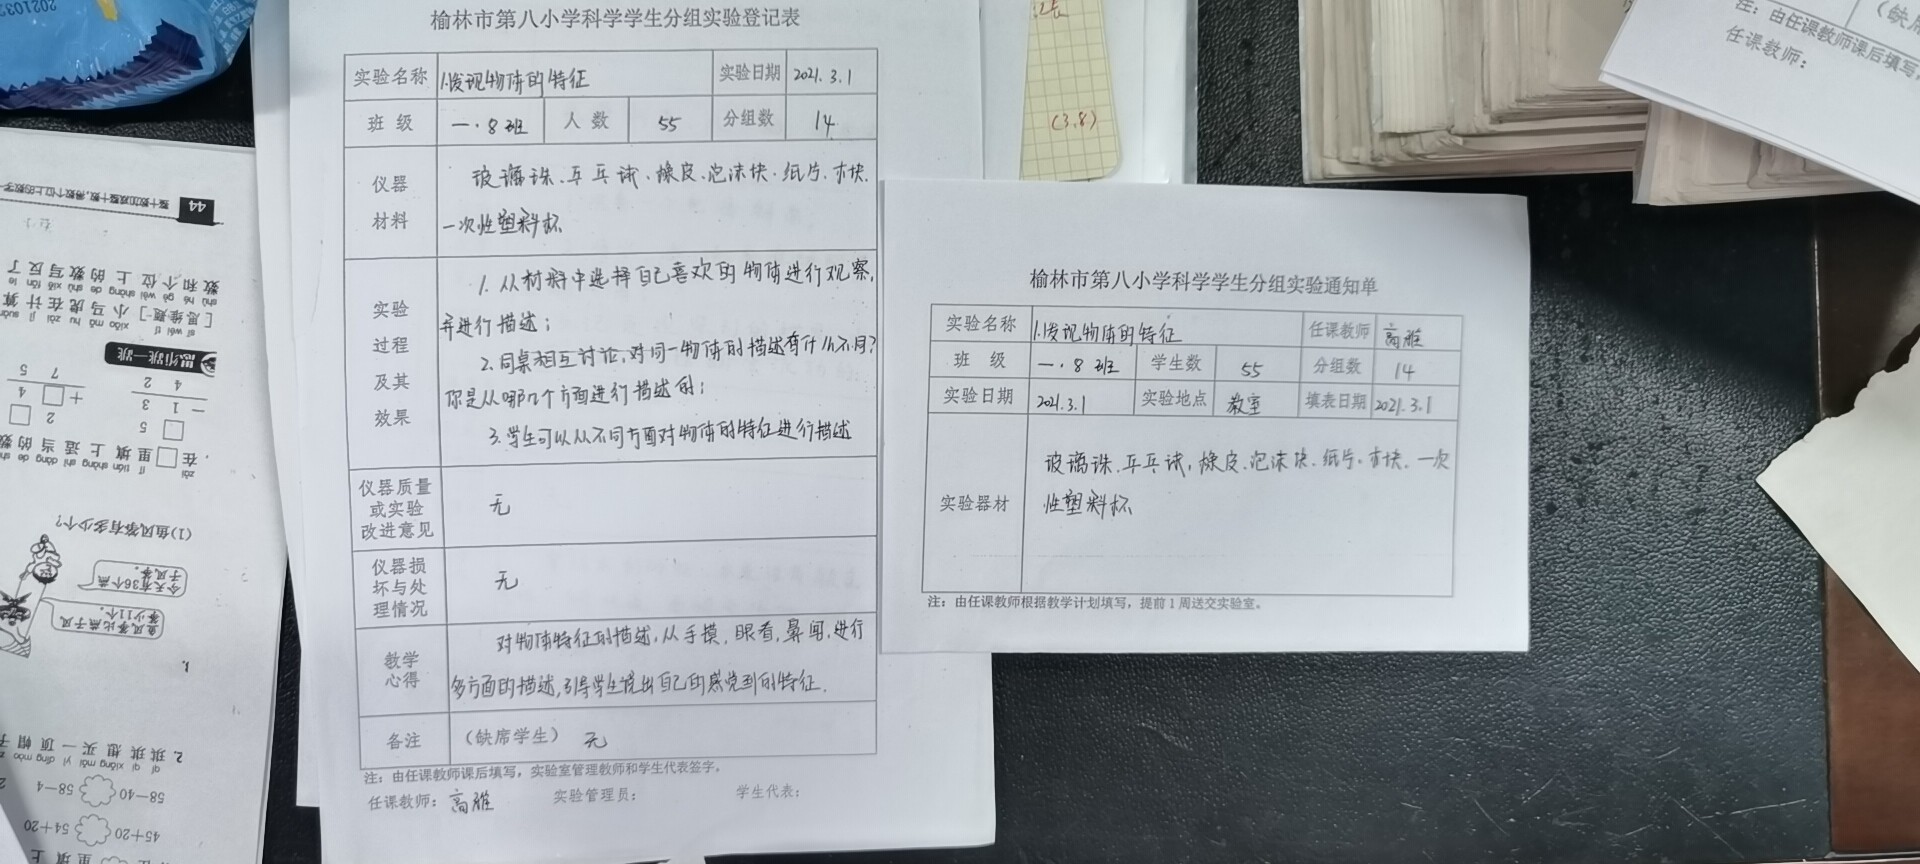 榆林市第八小学科学学生分组实验登记表
实验名称 1.发现物体的特征 实验日期 2021.3.1
班 级 一.8班 人 数 55 分组数 14
仪器 材料
玻璃珠、乒乓球、橡皮、泡沫块、纸片、木块、
一次性塑料杯
实验 过程 及其 效果
1. 从材料中选择自己喜欢的物体进行观察,
并进行描述;
2. 同桌相互讨论,对同一物体的描述有什么不同?
你是从哪几个方面进行描述的;
3. 学生可以从不同方面对物体的特征进行描述
仪器质量 或实验 改进意见 无
仪器损 坏与处 理情况 无
教学 心得
对物体特征的描述,从手摸,眼看,鼻闻,进行
多方面的描述,引导学生说出自己的感觉到的特征.
备注 (缺席学生) 无
注:由任课教师课后填写,实验室管理教师和学生代表签字。
任课教师:高雅 实验管理员: 学生代表:
榆林市第八小学科学学生分组实验通知单
实验名称 1.发现物体的特征 任课教师 高雅
班 级 一.8班 学生数 55 分组数 14
实验日期 2021.3.1 实验地点 教室 填表日期 2021.3.1
实验器材
玻璃珠、乒乓球、橡皮、泡沫块、纸片、木块、一次
性塑料杯
注:由任课教师根据教学计划填写,提前1周送交实验室。
(3.8)
注:由任课教师课后填写
任课教师:
44
思维跳一跳
(1)鱼风筝有多少个?
今天有36个燕
子风筝。
鱼风筝比燕子风
筝少11个。
58-40 58-4
45+20 54+20